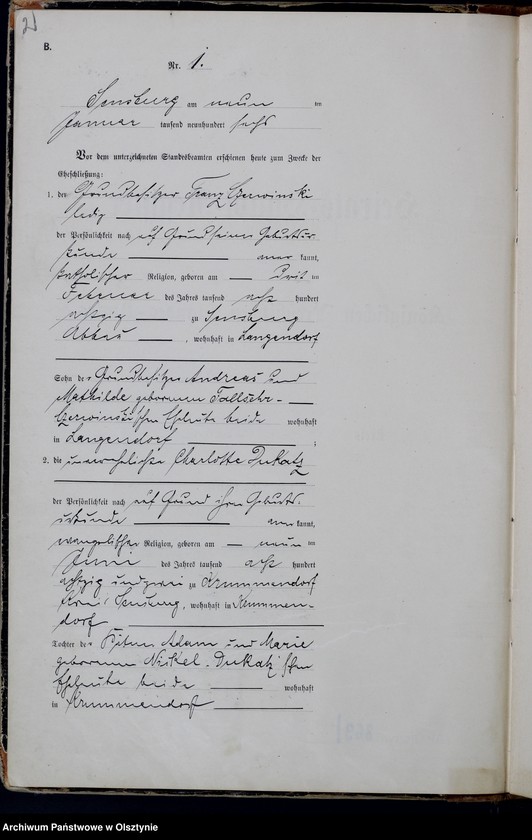 2)
B.
Nr. 1.
Sensburg am neun ten
Januar tausend neunhundert sechs
Vor dem unterzeichneten Standesbeamten erschienen heute zum Zwecke der
Eheschließung:
1. der Grundbesitzer Franz Czerwinski
ledig
der Persönlichkeit nach auf Grund seiner Geburtsur-
kunde aner kannt,
katholischer Religion, geboren am drit ten
Februar des Jahres tausend acht hundert
achtzig zu Sensburg
Abbau, wohnhaft in Langendorf
Sohn des Grundbesitzer Andreas und
Mathilde geborenen
Czerwinski'schen Eheleute beide wohnhaft
in Langendorf ;
2. die unverehelichte Charlotte Dukatz
der Persönlichkeit nach auf Grund ihrer Geburts-
urkunde aner kannt,
evangelischer Religion, geboren am neun ten
Juni des Jahres tausend acht hundert
achtzig und zu Krummendorf
Kreis Sensburg, wohnhaft in Krummen-
dorf
Tochter der Adam und Marie
geborenen Nickel-Dukatz'schen
Eheleute beide wohnhaft
in Krummendorf
Archiwum Państwowe w Olsztynie